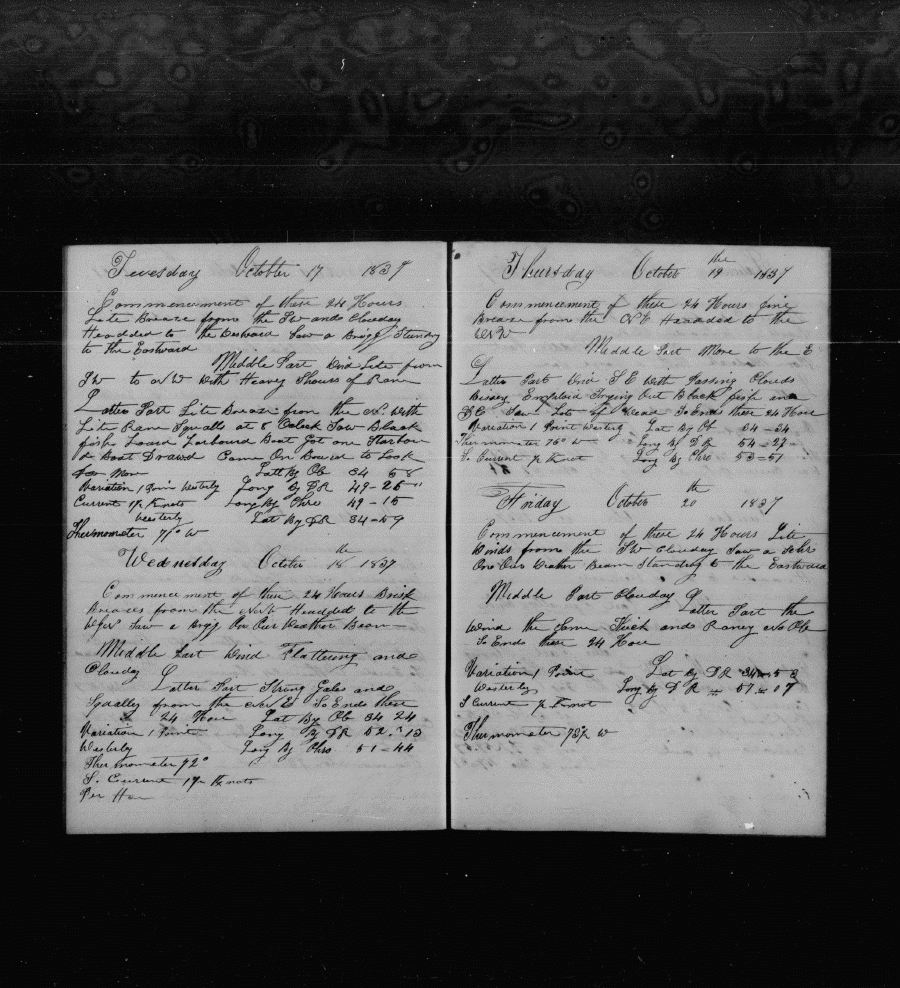 Tuesday October 17 1837
Commencement of these 24 Hours
Lite Breaze from the SW and Clouday
Headded to the Westward Saw a Brigg Standing
to the Eastward
Middle Part Wind Lite from
SW to NW With Heavy Shours of Rane
Latter Part Lite Breaze from the N. With
Lite Rane Squalls at 8 Oclock Saw Black
fish Loard Larbourd Boat Got one Starbor
de Boat Drawd Came On Board to Look
for More Latt By Ob 34 58
Variation 1 Poin Westerly Long By DR 49-26
Current 1/2 Knots Long By Chro 49-15
Westerly Lat By DR 34-59
Thermometer 71° W
Wednesday October 18 the 1837
Commencement of these 24 Hours Brisk
Breazes from the Headded to the
Saw a Brigg On Our Weather Beam
Middle Part Wind Flattering and
Clouday
Latter Part Strong Gales and
Squalley from the So Ends these
24 Hour Lat By Ob 34 24
Variation 1 Point Long By DR 52-13
Westerly Long By Chro 51-44
Thermometer 72°
S. Current 1/2 Knots
Per Hour
Thursday October 19 the 1837
Commencement of these 24 Hours fine
Breaze from the NE Headded to the
WNW
Middle Part More to the E
Latter Part Wind SE With Passing Clouds
Bissey Emploid Trying Out Black fish
Saw Lots of So Ends these 24 Hour
Variation 1 Point Westerly Lat By Ob 34-34
Thermometer 75° W Long By DR 54-27
S. Current 1/2 Knot Long By Chro 53-51
Friday October 20 th 1837
Commencement of these 24 Hours Lite
Winds from the SW Clouday Saw a Schr
On Our Weather Beam Standing to the Eastward
Middle Part Clouday Latter Part the
Wind the Same Thick and Raney No Ob
So Ends these 24 Hour
Variation 1 Point Lat By DR 34-53
Westerly Long By DR = 57=07
S Current 1/2 Knot
Thermometer W